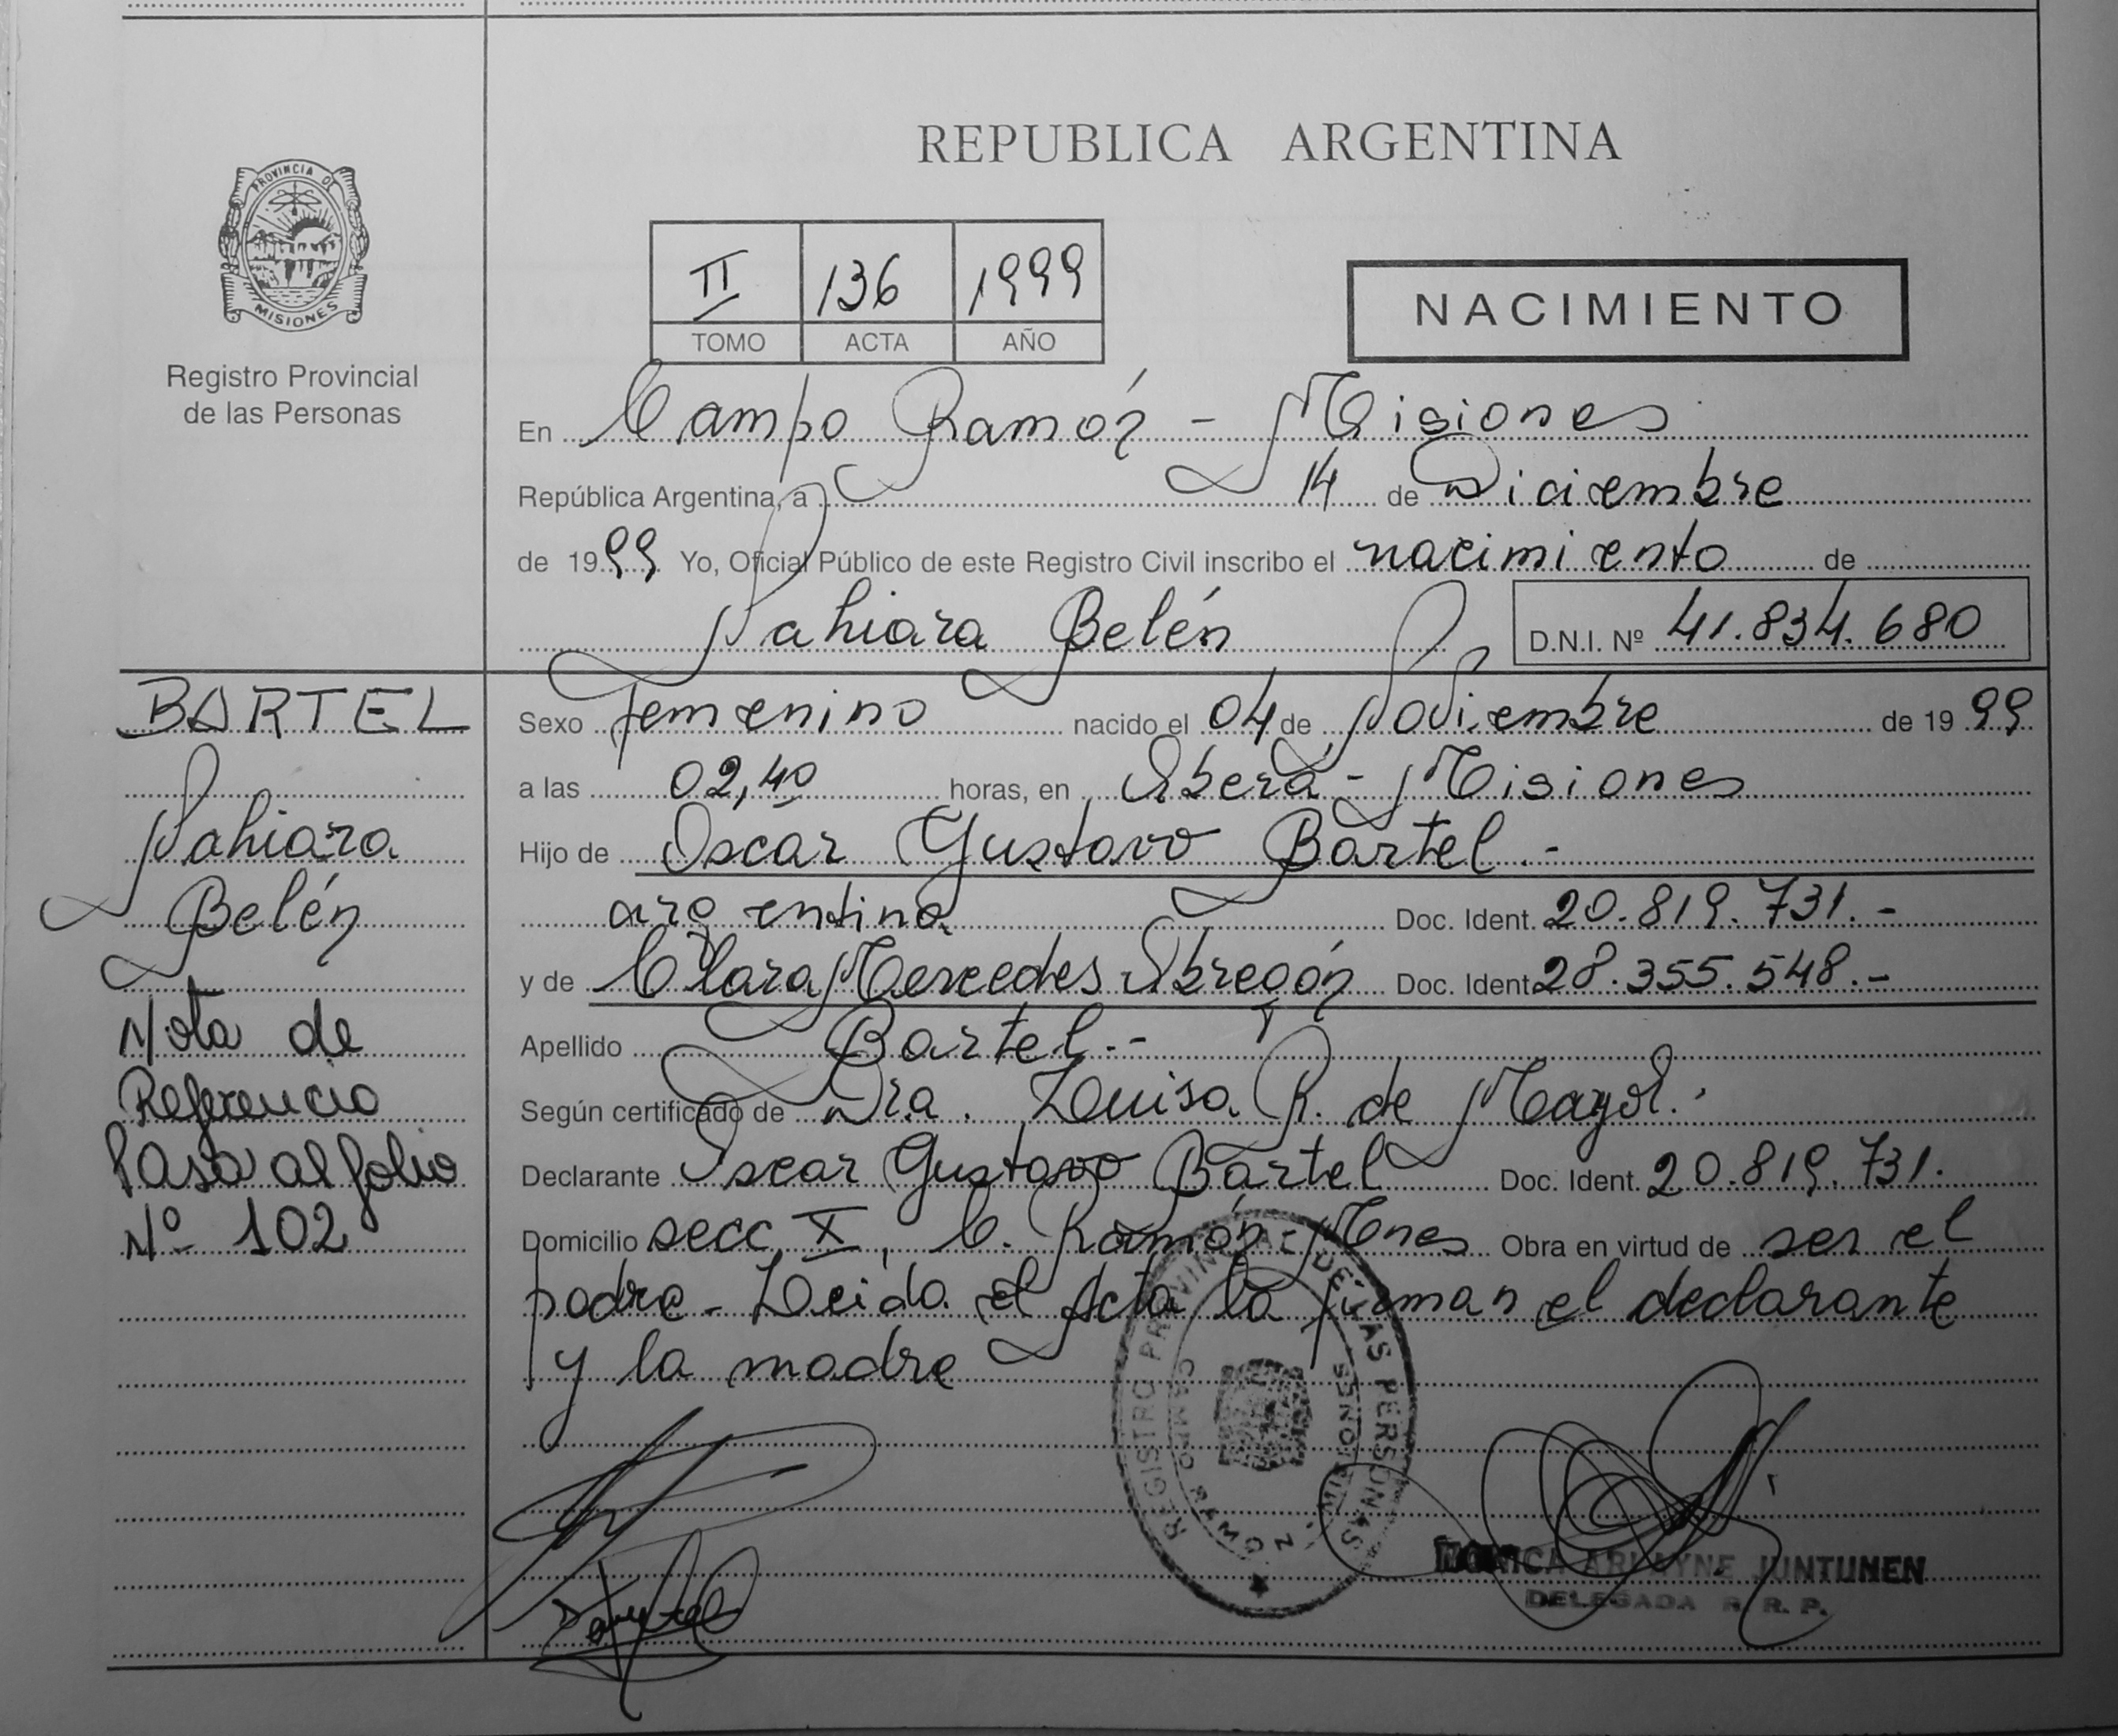 REPUBLICA ARGENTINA
PROVINCIA DE
MISIONES
Registro Provincial
de las Personas
II 136 1999
TOMO ACTA AÑO
NACIMIENTO
En Campo Ramón - Misiones
República Argentina, a 14 de Diciembre
de 1999 Yo, Oficial Público de este Registro Civil inscribo el nacimiento de
Nahiara Belén D.N.I. Nº 41.834.680
BARTEL
Nahiara
Belén
Nota de
Referencia
Pasa al folio
Nº 102
Sexo femenino nacido el 04 de Noviembre de 1999
a las 02,40 horas, en Oberá - Misiones
Hijo de Oscar Gustavo Bartel.-
argentina Doc. Ident. 20.819.731.-
y de Clara Mercedes Obregón Doc. Ident. 28.355.548.-
Apellido Bartel.-
Según certificado de Dra. Luisa R. de Mayol.
Declarante Oscar Gustavo Bartel Doc. Ident. 20.819.731.
Domicilio secc. X, C. Ramón - Mnes Obra en virtud de ser el
padre - Leida el Acta la firman el declarante
y la madre
REGISTRO PROVINCIAL DE LAS PERSONAS
CAMPO RAMON - MISIONES
JUNTUNEN
DELEGADA R. R. P.